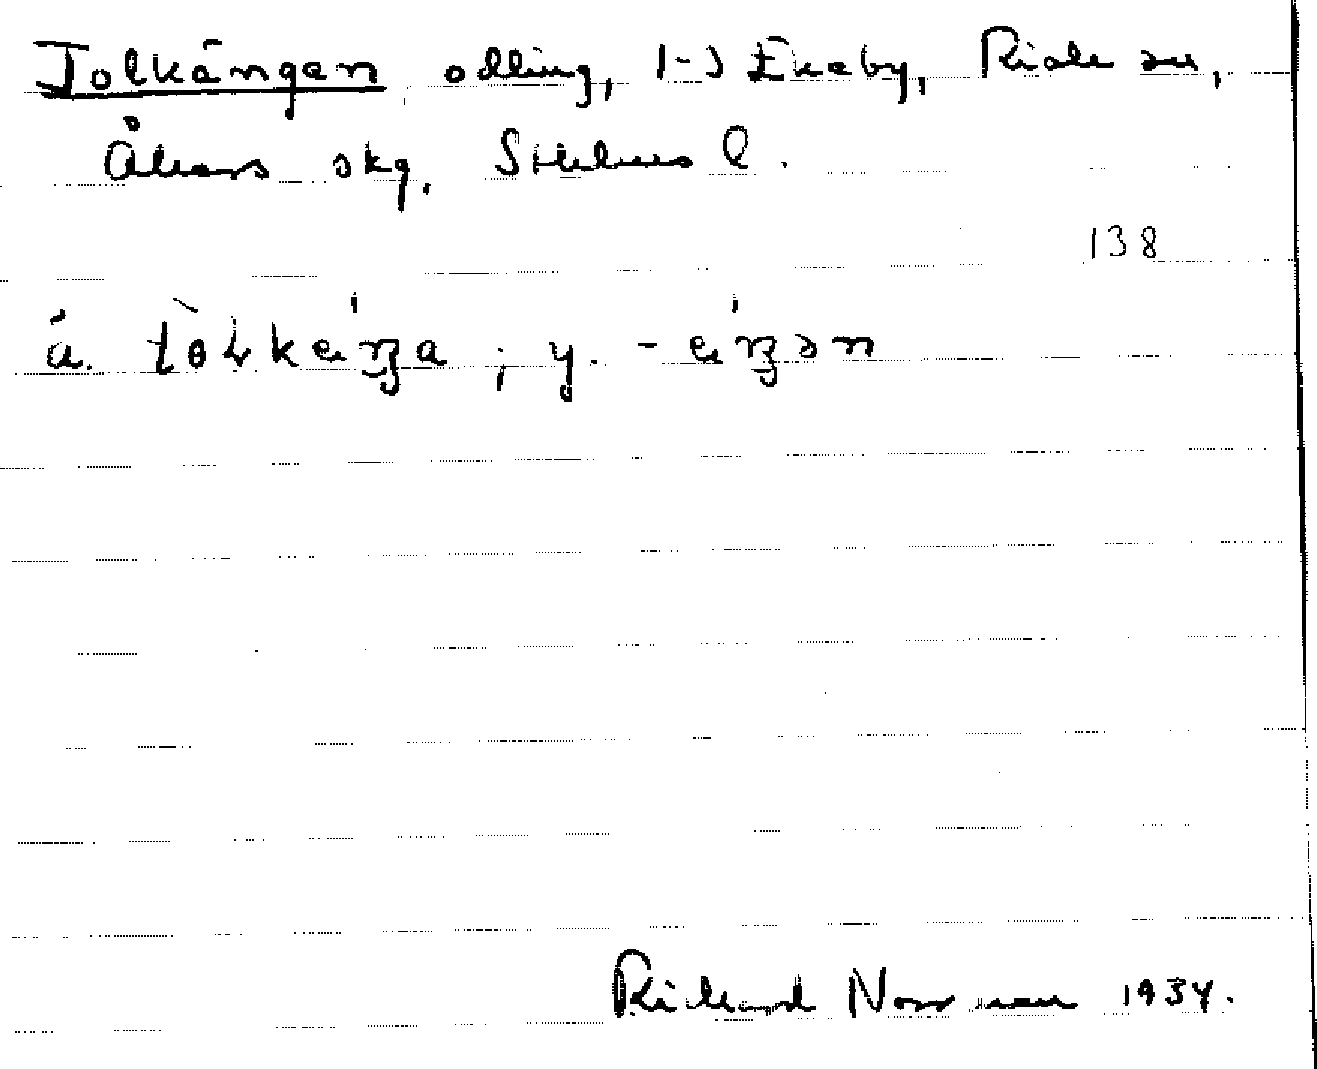 Tolkängen odling, 1-3 Ekeby, Riala sn,
Åkers skg, Sthlms l.
138
ä. tolkeŋa ; y. - eŋən
Richard Norrman 1934.